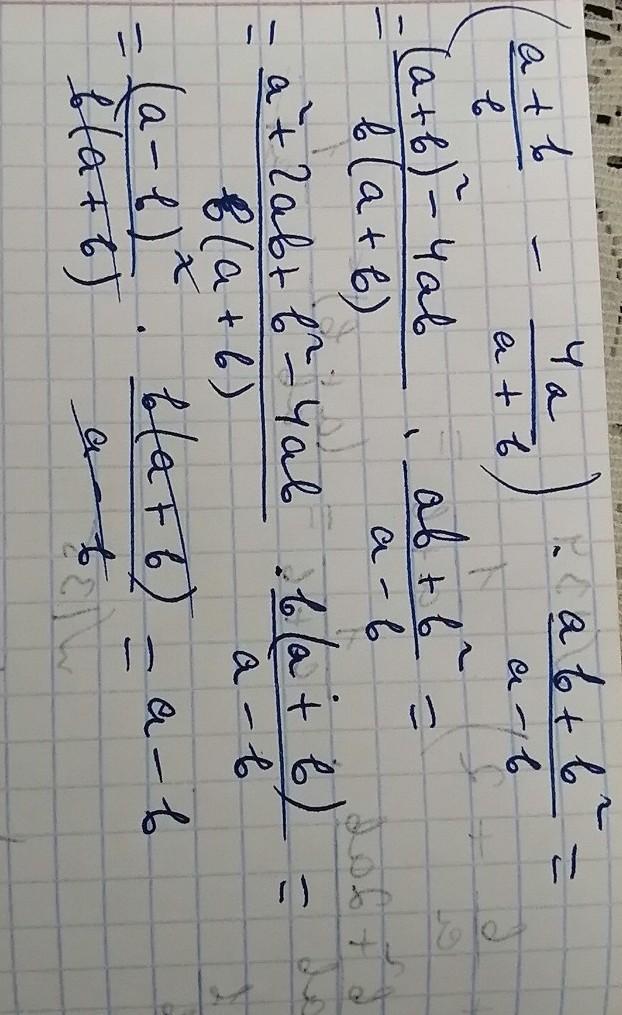 ( (a + b)/b − 4a/(a + b) ) · (ab + b²)/(a − b) =
= ((a + b)² − 4ab)/(b(a + b)) · (ab + b²)/(a − b) =
= (a² + 2ab + b² − 4ab)/(b(a + b)) · b(a + b)/(a − b) =
= (a − b)²/(b(a + b)) · b(a + b)/(a − b) = a − b